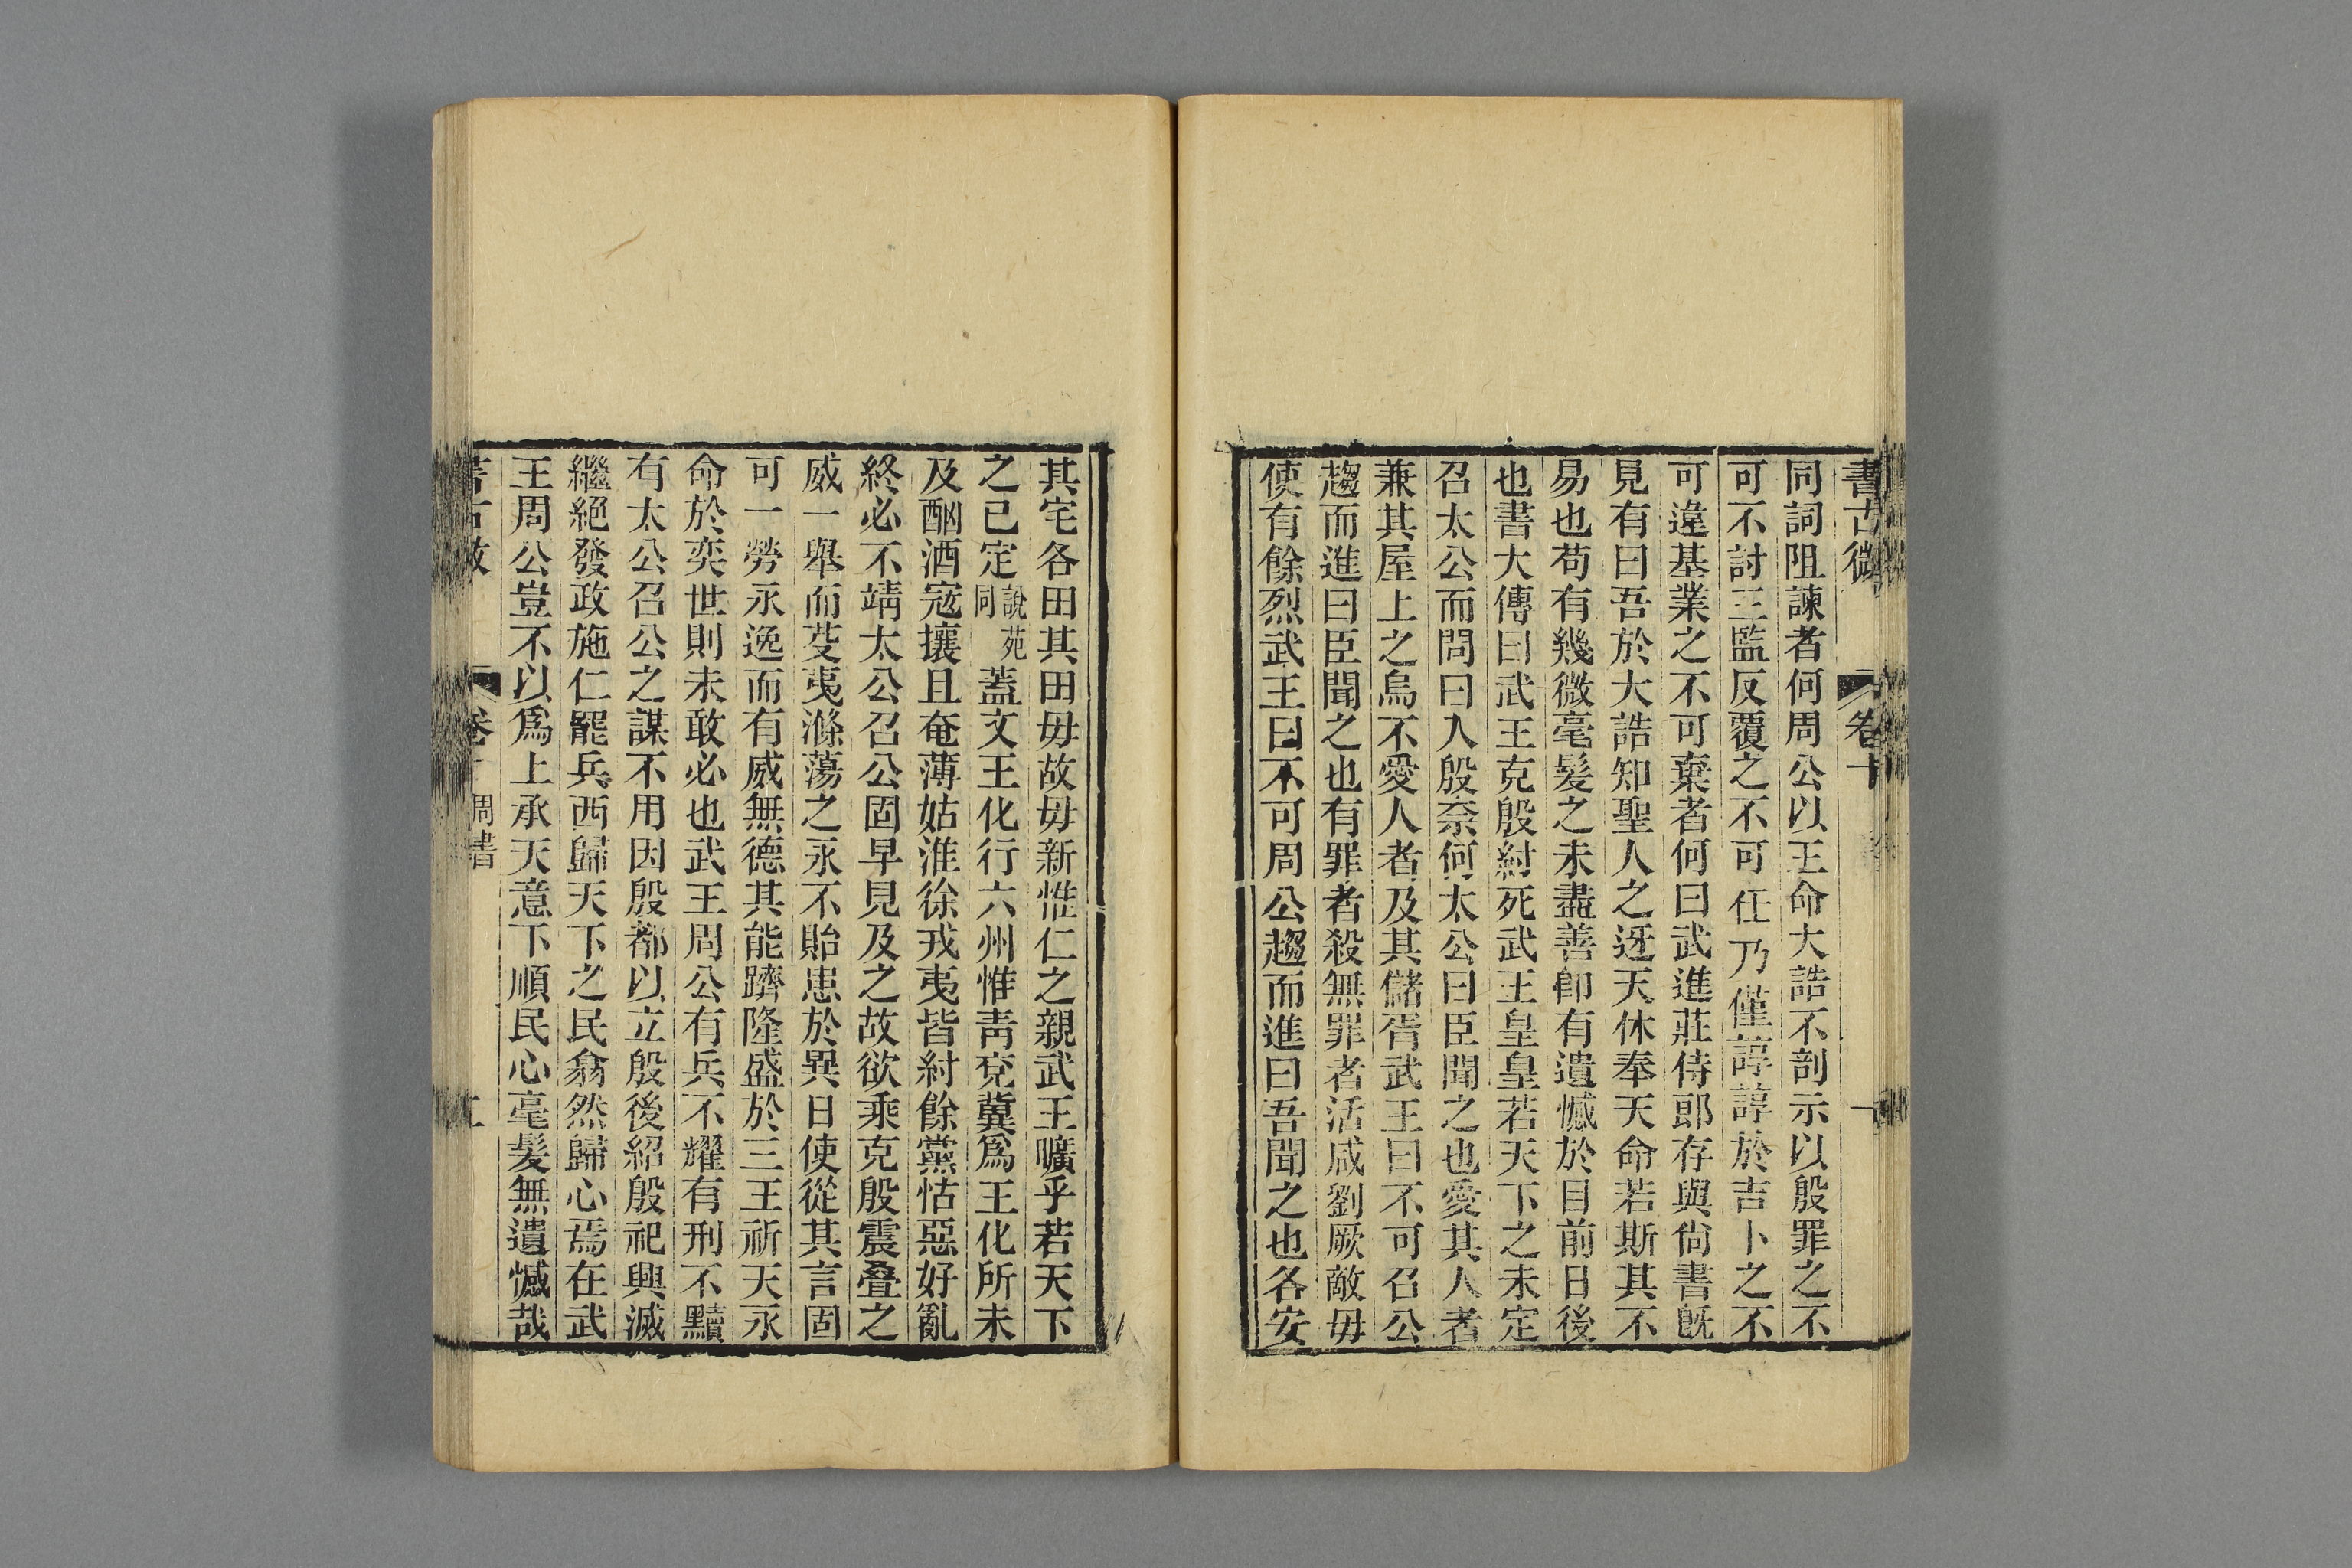 書古微 卷十 一
同詞阻諫者何周公以王命大誥不剖示以殷罪之不
可不討三監反覆之不可任乃僅諄諄於吉卜之不
可違基業之不可棄者何曰武進莊侍郎存與尙書旣
見有曰吾於大誥知聖人之迓天休奉天命若斯其不
易也苟有幾微毫髮之未盡善卽有遺憾於目前日後
也書大傳曰武王克殷紂死武王皇皇若天下之未定
召太公而問曰入殷奈何太公曰臣聞之也愛其人者
兼其屋上之烏不愛人者及其儲胥武王曰不可召公
趨而進曰臣聞之也有罪者殺無罪者活咸劉厥敵毋
使有餘烈武王曰不可周公趨而進曰吾聞之也各安
其宅各田其田毋故毋新惟仁之親武王曠乎若天下
之已定說苑同蓋文王化行六州惟靑兗冀爲王化所未
及酗酒寇攘且奄薄姑淮徐戎夷皆紂餘黨怙惡好亂
終必不靖太公召公固早見及之故欲乘克殷震疊之
威一舉而芟夷滌蕩之永不貽患於異日使從其言固
可一勞永逸而有威無德其能躋隆盛於三王祈天永
命於奕世則未敢必也武王周公有兵不耀有刑不黷
有太公召公之謀不用因殷都以立殷後紹殷祀興滅
繼絕發政施仁罷兵西歸天下之民翕然歸心焉在武
王周公豈不以爲上承天意下順民心毫髮無遺憾哉
書古微 卷十 周書